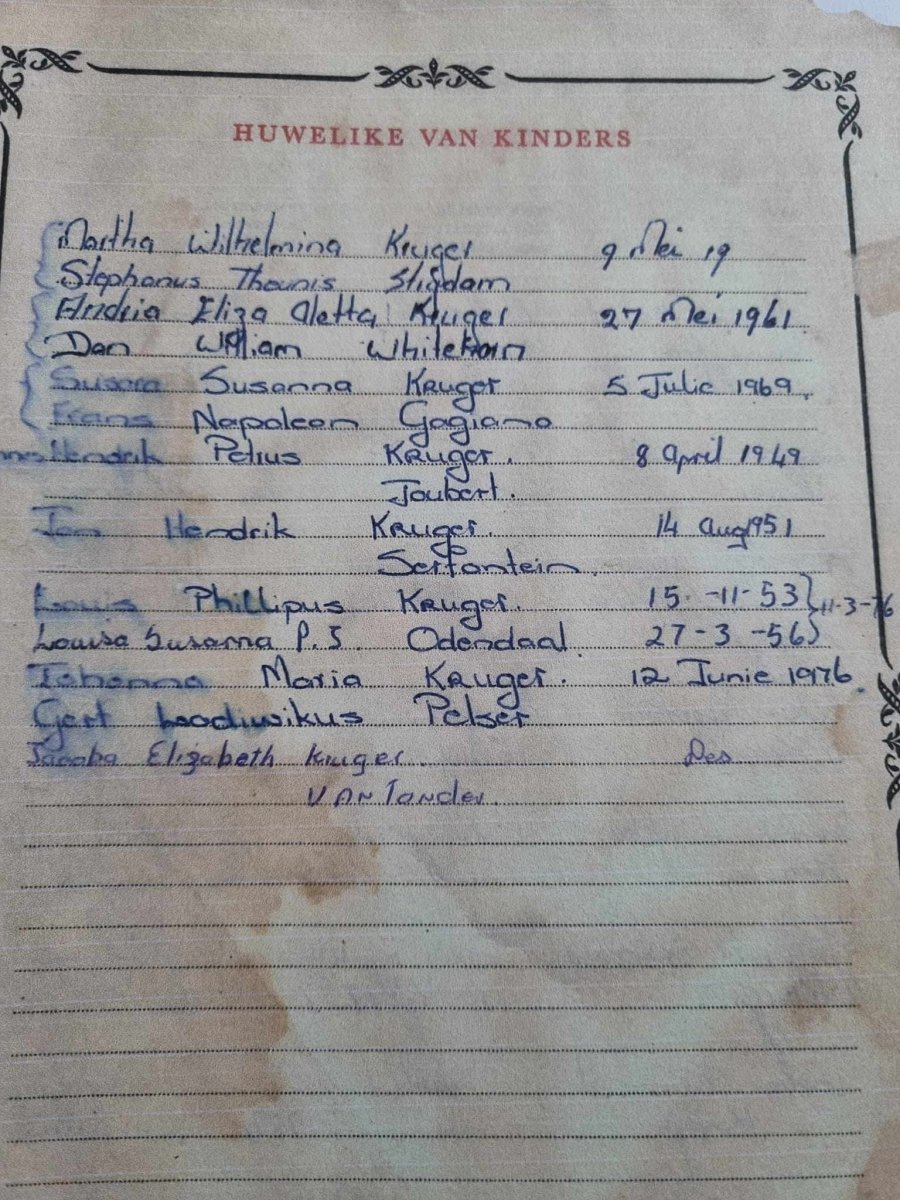 HUWELIKE VAN KINDERS
Martha Wilhelmina Kruger 9 Mei 19
Stephanus Thounis
Andria Eliza Aletta Kruger 27 Mei 1961
Dan William
Susara Susanna Kruger 5 Julie 1969.
Frans Napoleon Gagiano
Hendrik Petrus Kruger. 8 April 1949
Joubert.
Jan Hendrik Kruger. 14 Aug 1951
Serfontein.
Louis Phillipus Kruger. 15-11-53 } 11-3-76
Louisa Susarna P.S. Odendaal 27-3-56
Johanna Maria Kruger. 12 Junie 1976.
Gert Loodiwikus Pelser
Jacoba Elizabeth Kruger. Des
VAN Tonder.